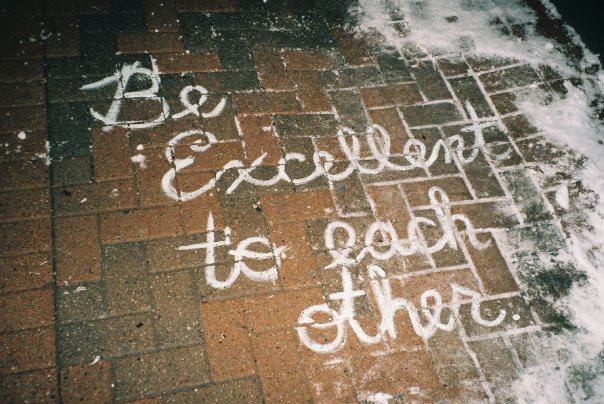 Be
Excellent
to each
other.